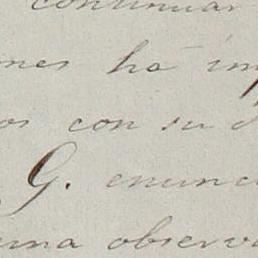 continuar
nes ha im
os con su
G. enunci
una observa